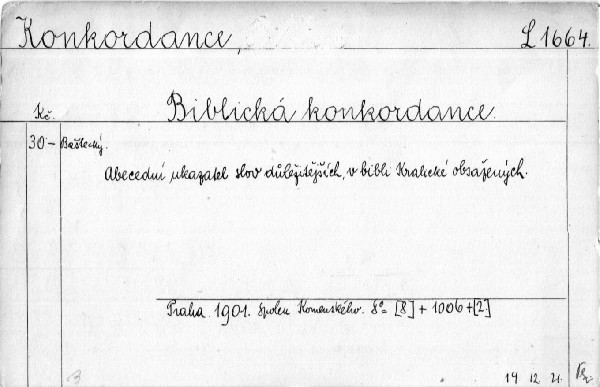 Konkordance, L 1664.
Kč. Biblická konkordance.
30·- Baštecký.
Abecední ukazatel slov důležitějších, v bibli Kralické obsažených.
Praha. 1901. Spolek Komenského. 8°= [8] + 1006 + [2]
3 14 12. 21.